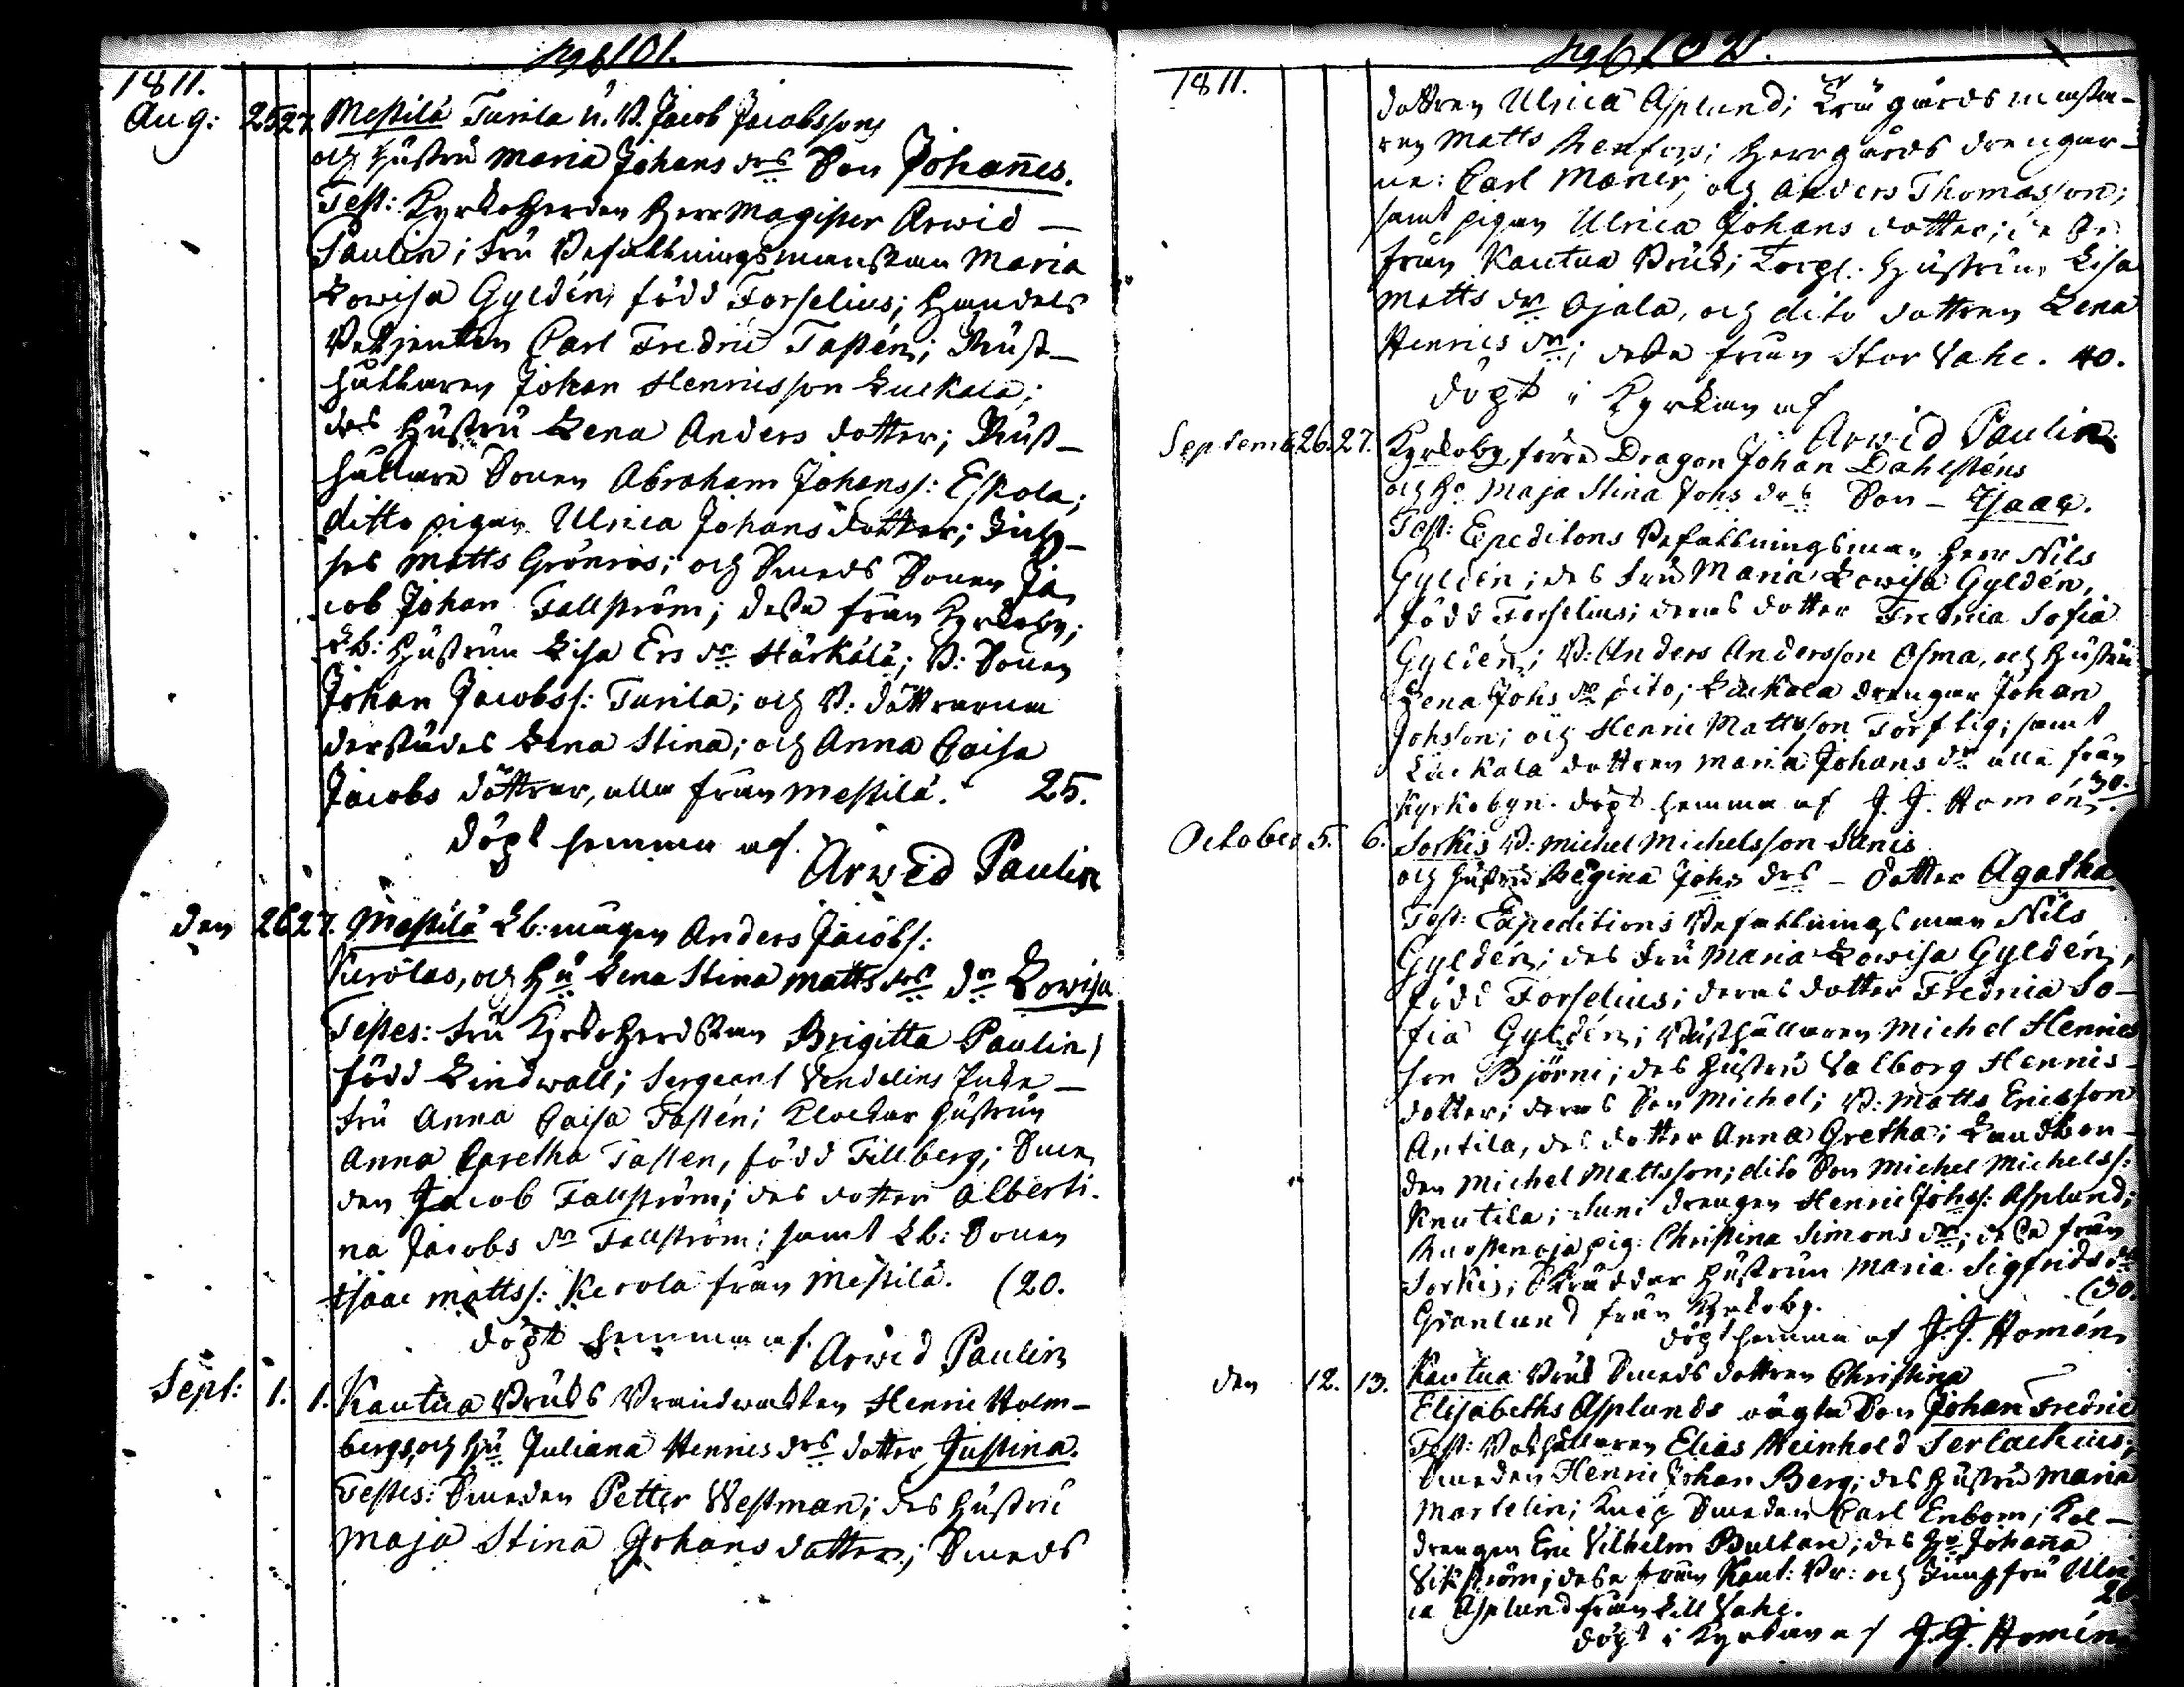 pag 101.
1811.
Aug: 25 27. Mestilä Turila u. B. Jacob Jacobssons
och Hustru Maria Johans drs Son Johannes.
Test: Kyrkoherden Herr Magister Arwid
Paulin; Fru Befallningsmanskan Maria
Lowisa Gyldén, född Forselius; Handels
Betjenten Carl Fredric Tastén; Rust-
hållaren Johan Henricsson Luckala;
des Hustru Lena Anders dotter; Rust-
hållare Sonen Abraham Johanss: Eskola;
ditto pigan Ulrica Johans dotter;
Matts Grönros; och Smeds Sonen Ja
cob Johan Fallström; dessa från Kyrkoby;
Lb: Hustrun Lisa Ers dr Härkälä; B: Sonen
Johan Jacobss: Turila; och B: döttrarna
derstädes Lena Stina; och Anna Caisa
Jacobs döttrar, alla från Mestilä. 25.
döpt hemma af
Arwid Paulin
den 26 27. Mestilä Lb: mågen Anders Jacobs:
Kerolas, och Hu Lena Stina Matts drs dr Lowisa
Testes: Fru Kyrkoherdskan Brigitta Paulin,
född Lindwall; Sergeant Vendelins Enke-
fru Anna Caisa Tastén; Klockar Hustrun
Anna Gretha Tasten, född Tillberg; Sme
den Jacob Fallström; des dotter Alberti-
na Jacobs dr Fallström; samt Lb: Sonen
Isaac Mattss: Kerola från Mestilä. (20.
döpt hemma af
Arwid Paulin
Sept: 1. 1. Kautua Bruks Brandwakten Henric Holm-
bergs, och Hu Juliana Henrics drs dotter Justina.
Testes: Smeden Petter Westman; des Hustru
Maja Stina Johans dotter; Smeds
pag 102.
1811.
dottren Ulrica Asplund; Trägårdsmästa-
ren Matts Renfors; Herrgårds drengar-
ne: Carl Maner, och Anders Thomasson;
samt pigan Ulrica Johans dotter; dessa
från Kautua Bruk; Torp: Hustrun Lisa
Matts dr Ojala, och dito dottren Lena
Henrics dr; dessa från Stor Vahe. 40.
döpt i Kyrkan af
Arwid Paulin
Septemb 26. 27. Kyrkoby, förre Dragon Johan Dahlsténs
och Hu Maja Stina Johs drs Son - Isaac.
Test: Expeditons Befallningsman Herr Nils
Gyldén; des Fru Maria Lowisa Gyldén,
född Forselius; deras dotter Fredrica Sofia
Gyldén; B: Anders Andersson Osma, och Hustru
Lena Johs dr dito; Luckala drengar Johan
Johsson; och Henric Mattsson Torftig; samt
Luckala dottren Maria Johans dr alla från
Kyrkobyn. döpt hemma af J. J. Homén. 30.
October 5. 6. Sorkis B: Michel Michelsson
och Hustru Regina Johs drs - dotter Agatha
Test: Expeditions Befallningsman Nils
Gyldén; des Fru Maria Lowisa Gyldén,
född Forselius; deras dotter Fredrica So-
fia Gyldén; Rusthållaren Michel Henrics
son Björni; des Hustru Valborg Henrics-
dotter; deras Son Michel; B: Matts Ericsson
Antila, des dotter Anna Gretha; Landbon-
den Michel Mattsson; dito Son Michel Michelss:
Knutila; drengen Henric Johss: Asplund;
pig: Christina Simons dr; dessa från
Sorkis; Skräddar Hustrun Maria Sigfrids dr
Grönlund från Kyrkoby. (30.
döpt hemma af J. J. Homén
den 12. 13. Kautua Bruk Smeds dottren Christina
Elisabeths Asplunds oägta Son Johan Fredric
Test: Bokhållaren Elias Reinhold Serlachius;
Smeden Henric Johan Berg; des Hustru Maria
Martelin; Knip Smeden Carl Enbom; Kol-
drengen Eric Vilhelm Bultare; des Hu Johanna
Vikström; dessa från Kaut: Br: och Jungfru Ulri
ca Asplund från Lill Vahe. 20
döpt i Kyrkan af J. J. Homén